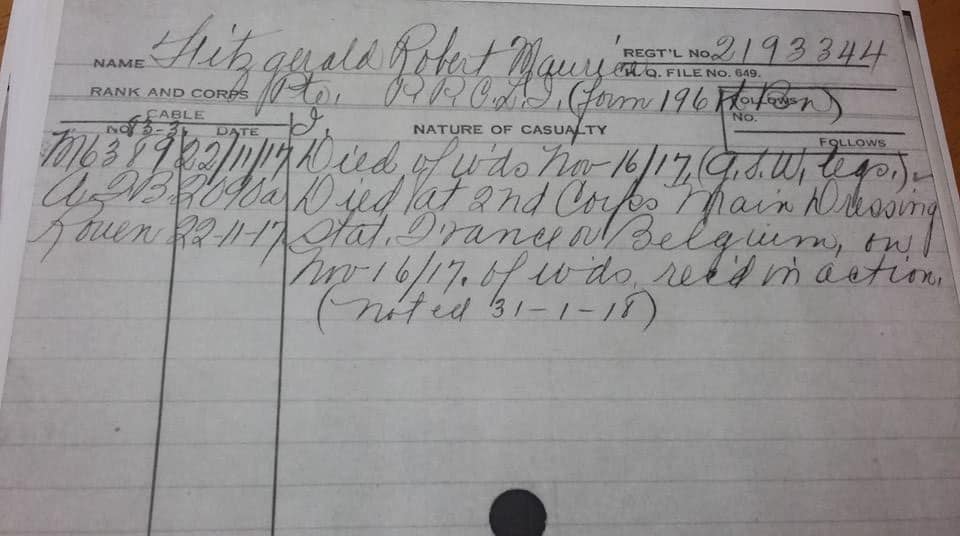 NAME Fitzgerald Robert Maurice REGT'L No. 2193344
H. Q. FILE NO. 649.
RANK AND CORPS Pte. P.P.C.L.I. (form 196th Bn) FOLLOWS
NO.
CABLE
NO. DATE NATURE OF CASUALTY FOLLOWS
M6389 22/11/17 Died of w'ds Nov 16/17, (G.S.W. legs.)
Died at 2nd Corps Main Dressing
Rouen 22-11-17 Stat. France or Belgium, on
Nov 16/17. of w'ds. rec'd in action.
(noted 31-1-18)